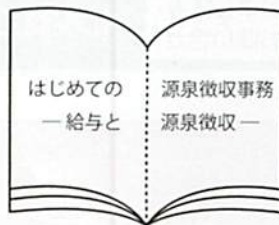 はじめての 源泉徴収事務
― 給与と 源泉徴収 ―